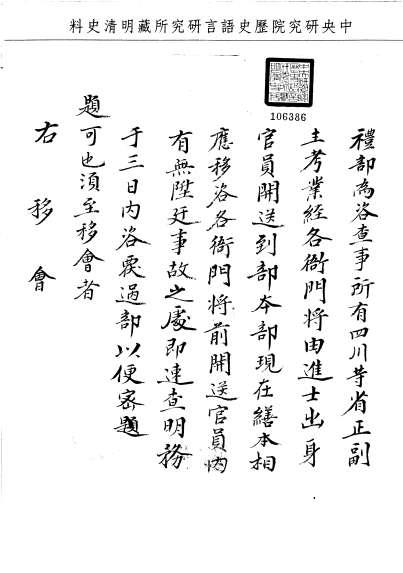 中央研究院歷史語言研究所藏明清史料
106386
禮部為咨查事所有四川等省正副
主考業經各衙門將由進士出身
官員開送到部本部現在繕本相
應移咨各衙門將前開送官員內
有無陞迁事故之處即速查明務
于三日內咨覆過部以便密題
題可也須至移會者
右移會